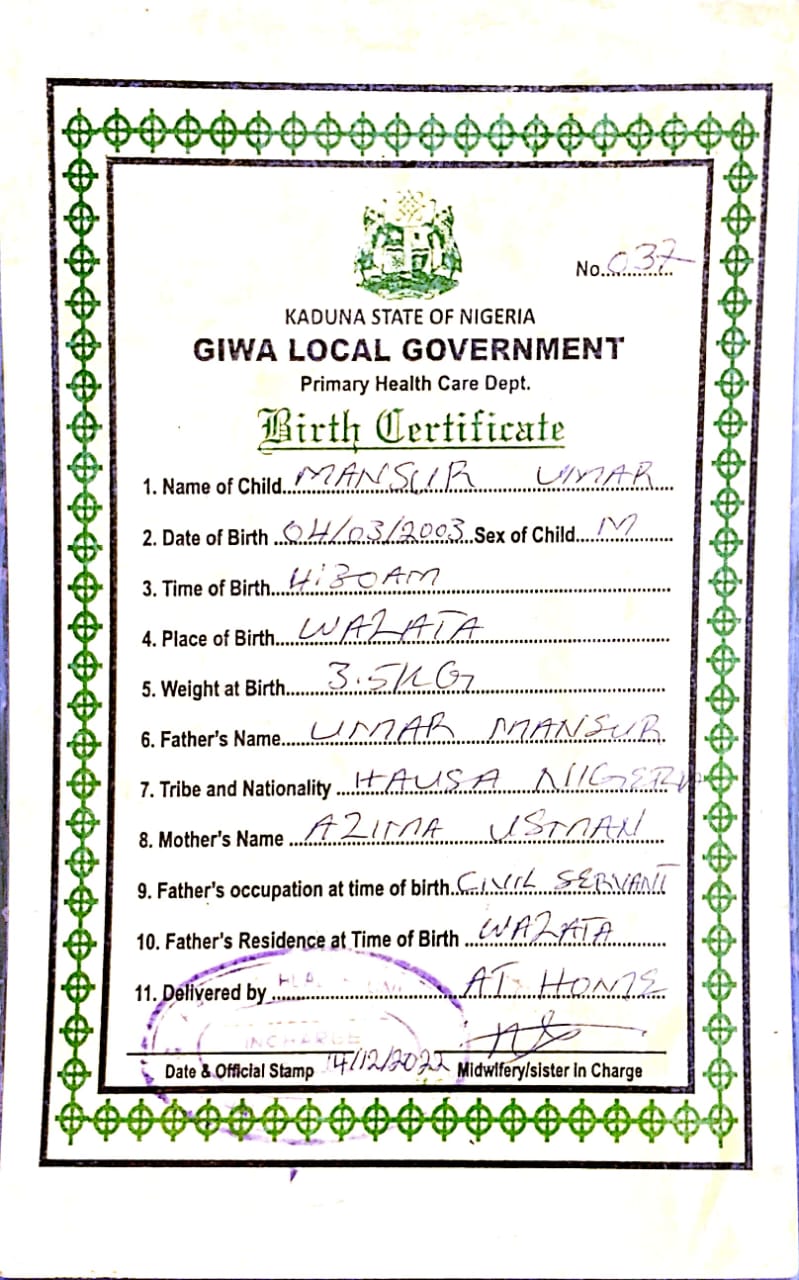 No. 037
KADUNA STATE OF NIGERIA
GIWA LOCAL GOVERNMENT
Primary Health Care Dept.
Birth Certificate
1. Name of Child MANSUR UMAR
2. Date of Birth 04/03/2003 Sex of Child M
3. Time of Birth 4:30AM
4. Place of Birth WAZATA
5. Weight at Birth 3.5KG
6. Father's Name UMAR MANSUR
7. Tribe and Nationality HAUSA
8. Mother's Name AZIMA USMAN
9. Father's occupation at time of birth CIVIL SERVANT
10. Father's Residence at Time of Birth WAZATA
11. Delivered by AT HOME
INCHARGE
Date & Official Stamp 14/12/2022 Midwifery/sister in Charge